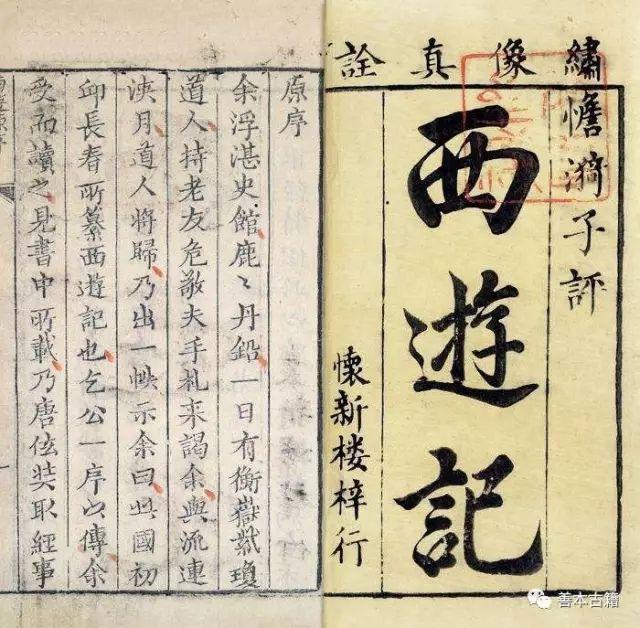 繡像真詮
憺漪子評
西遊記
懷新楼梓行
原序
余浮湛史館鹿〻丹鉛一日有衡嶽紫瓊
道人持老友危敬夫手札来謁余與流連
浹月道人将歸乃出一帙示余曰此國初
邱長春所纂西遊記也乞公一序以傳余
受而讀之見書中所載乃唐伭奘取經事
善本古籍